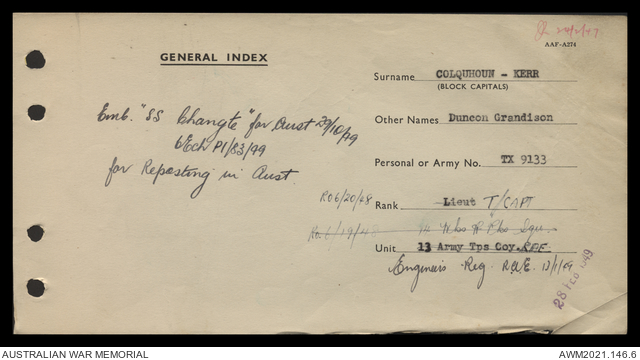 GENERAL INDEX
AAF-A274
Surname COLQUHOUN - KERR
(BLOCK CAPITALS)
Other Names Duncon Grandison
Personal or Army No. TX 9133
Rank Lieut T/CAPT
RO 6/20/48
Ro. 6/19/48
Unit 13 Army Tps Coy. RAE.
Engineers Reg. R.A.E. 13/1/49
28 FEB 1949
Emb. "SS Changte" for Aust 29/10/49
6Ech P1/83/49
for Reposting in Aust.
AUSTRALIAN WAR MEMORIAL
AWM2021.146.6